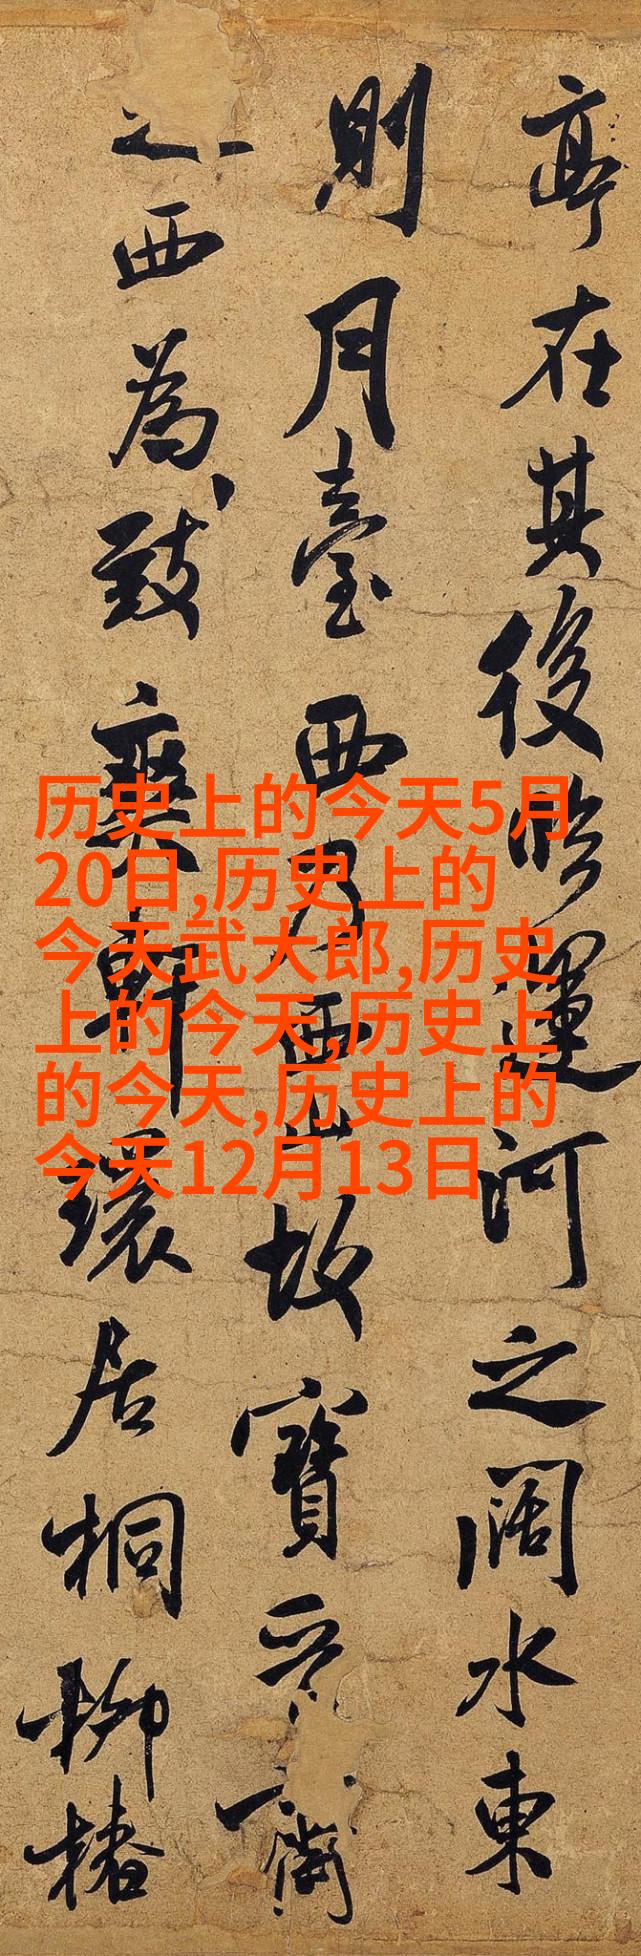 亭在其後臨運河之闊水東
則月臺西乃西山故寶晉齋
之西為致爽軒環居桐柳椿
历史上的今天5月
20日,历史上的
今天武大郎,历史
上的今天,历史上
的今天,历史上的
今天12月13日